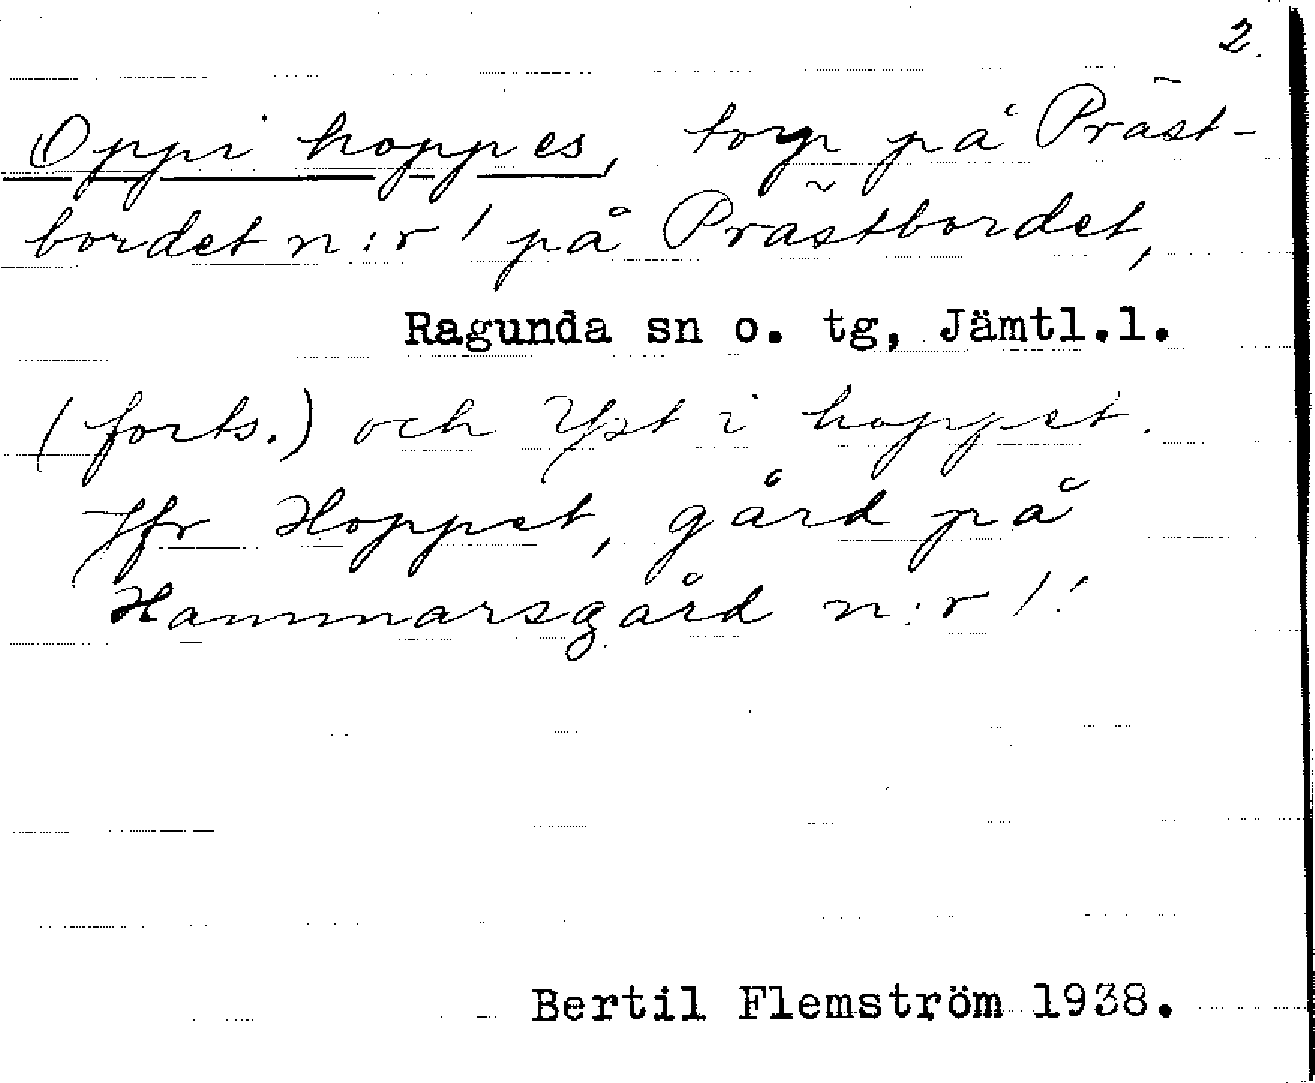 2.
Oppi hoppes, torp på Präst-
bordet n:r 1 på Prästbordet,
Ragunda sn o. tg, Jämtl.l.
(forts.) och Yst i hoppet.
Jfr Hoppet, gård på
Hammarsgård n:r 1!
Bertil Flemström 1938.